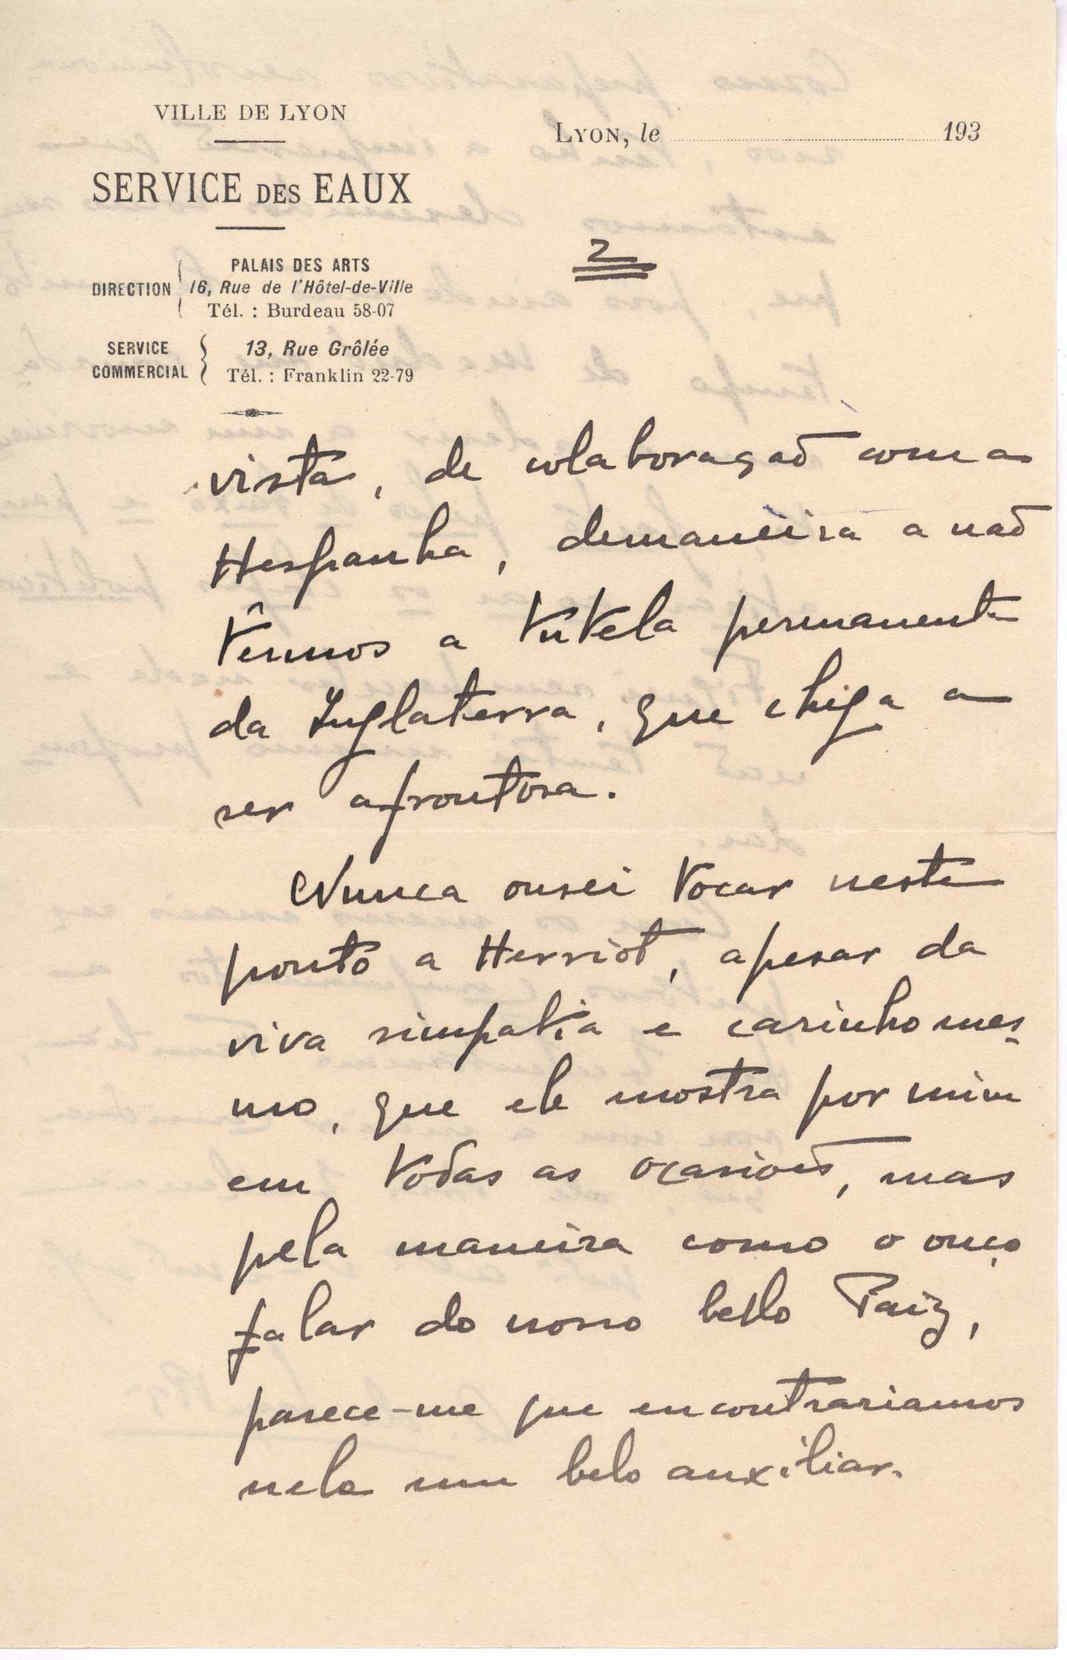 VILLE DE LYON
SERVICE DES EAUX
DIRECTION
PALAIS DES ARTS
16, Rue de l'Hôtel-de-Ville
Tél. : Burdeau 58-07
SERVICE COMMERCIAL
13, Rue Grôlée
Tél. : Franklin 22-79
LYON, le 193
2
vista, de colaboraçaõ com a
Hespanha, demaneira a naõ
têrmos a tutela permanente
da Inglaterra, que chega a
ser afrontosa.
Nunca ousei tocar neste
ponto a Herriot, apesar da
viva simpatia e carinho mes-
mo, que ele mostra por mim
em todas as ocasioẽs, mas
pela maneira como o ouço
falar do nosso bello Paiz,
parece-me que encontrariamos
nele um belo auxiliar.